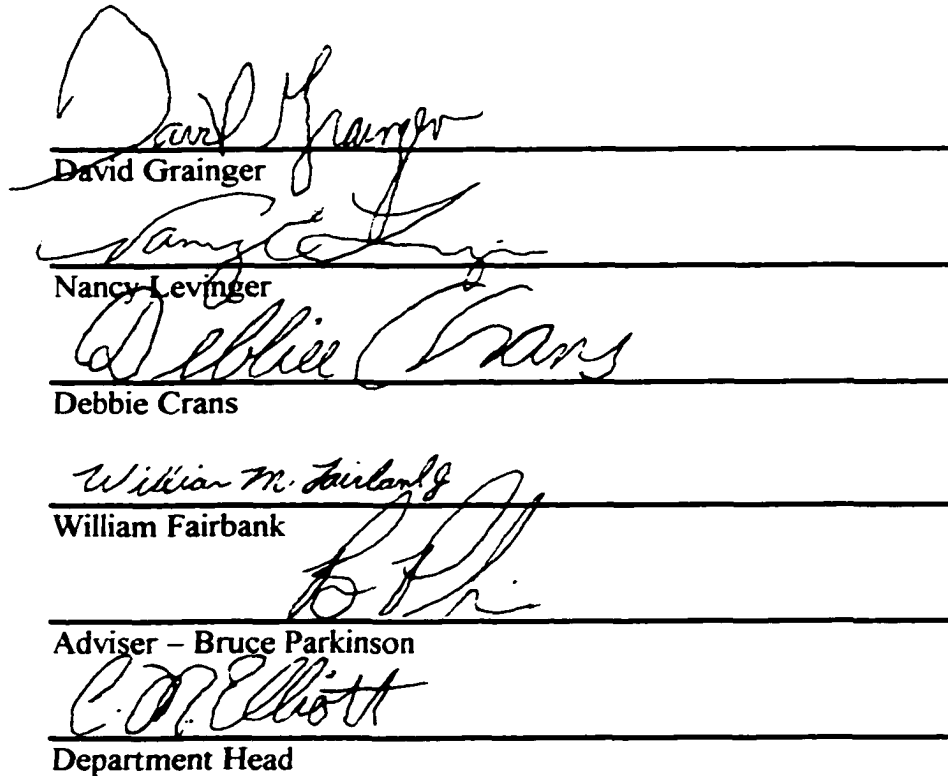 David Grainger
David Grainger
Nancy E Levinger
Nancy Levinger
Debbie Crans
Debbie Crans
William M. Fairbank Jr
William Fairbank
Adviser – Bruce Parkinson
C. M. Elliott
Department Head